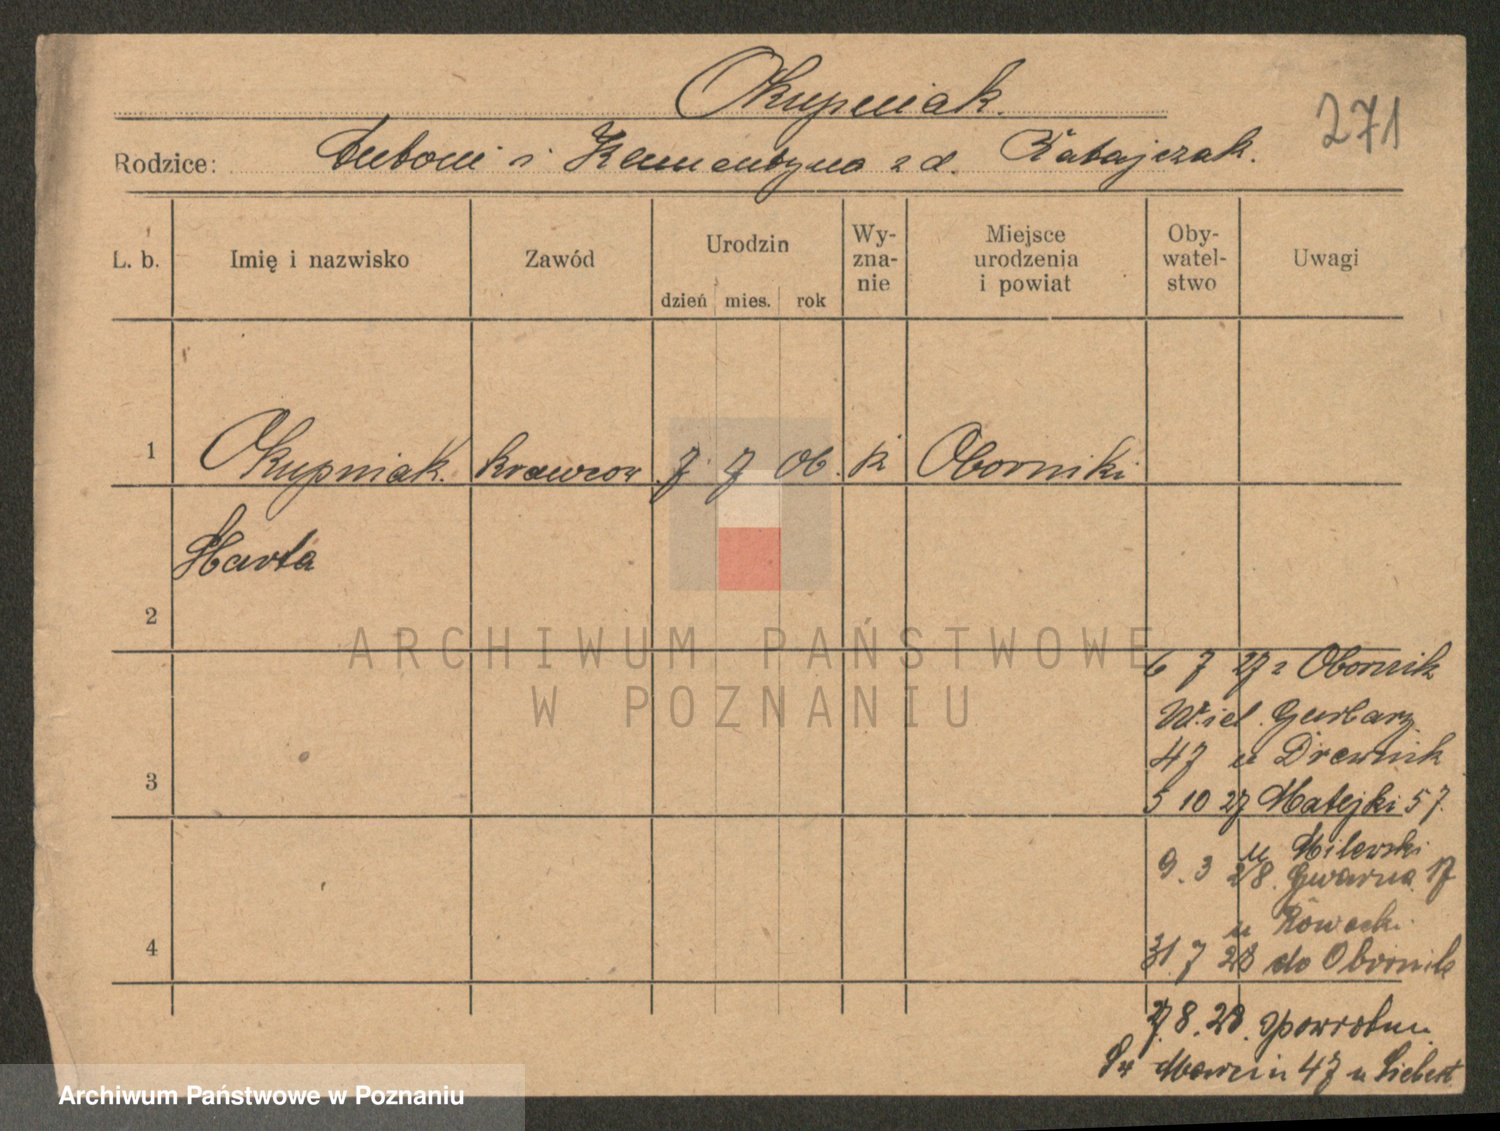 Okupniak.
271
Rodzice: Antoni i Klementyna z d. Ratajczak.
L. b. Imię i nazwisko Zawód Urodzin dzień mies. rok Wy-zna-nie Miejsce urodzenia i powiat Oby-watel-stwo Uwagi
1 Okupniak. krawcow 7. 7 06. k Oborniki
Marta
2
ARCHIWUM PAŃSTWOWE
W POZNANIU
6 7 27 z Obornik
Wiel. Garbary
47 u Drewnik
3
5 10 27 Matejki 57.
u Milerski
9. 3 28. Gwarna 17
u Nowacki
4
31. 7 28 do Obornik
8. 28. zpowrotem
Św Marcin 47 u Siebert
Archiwum Państwowe w Poznaniu